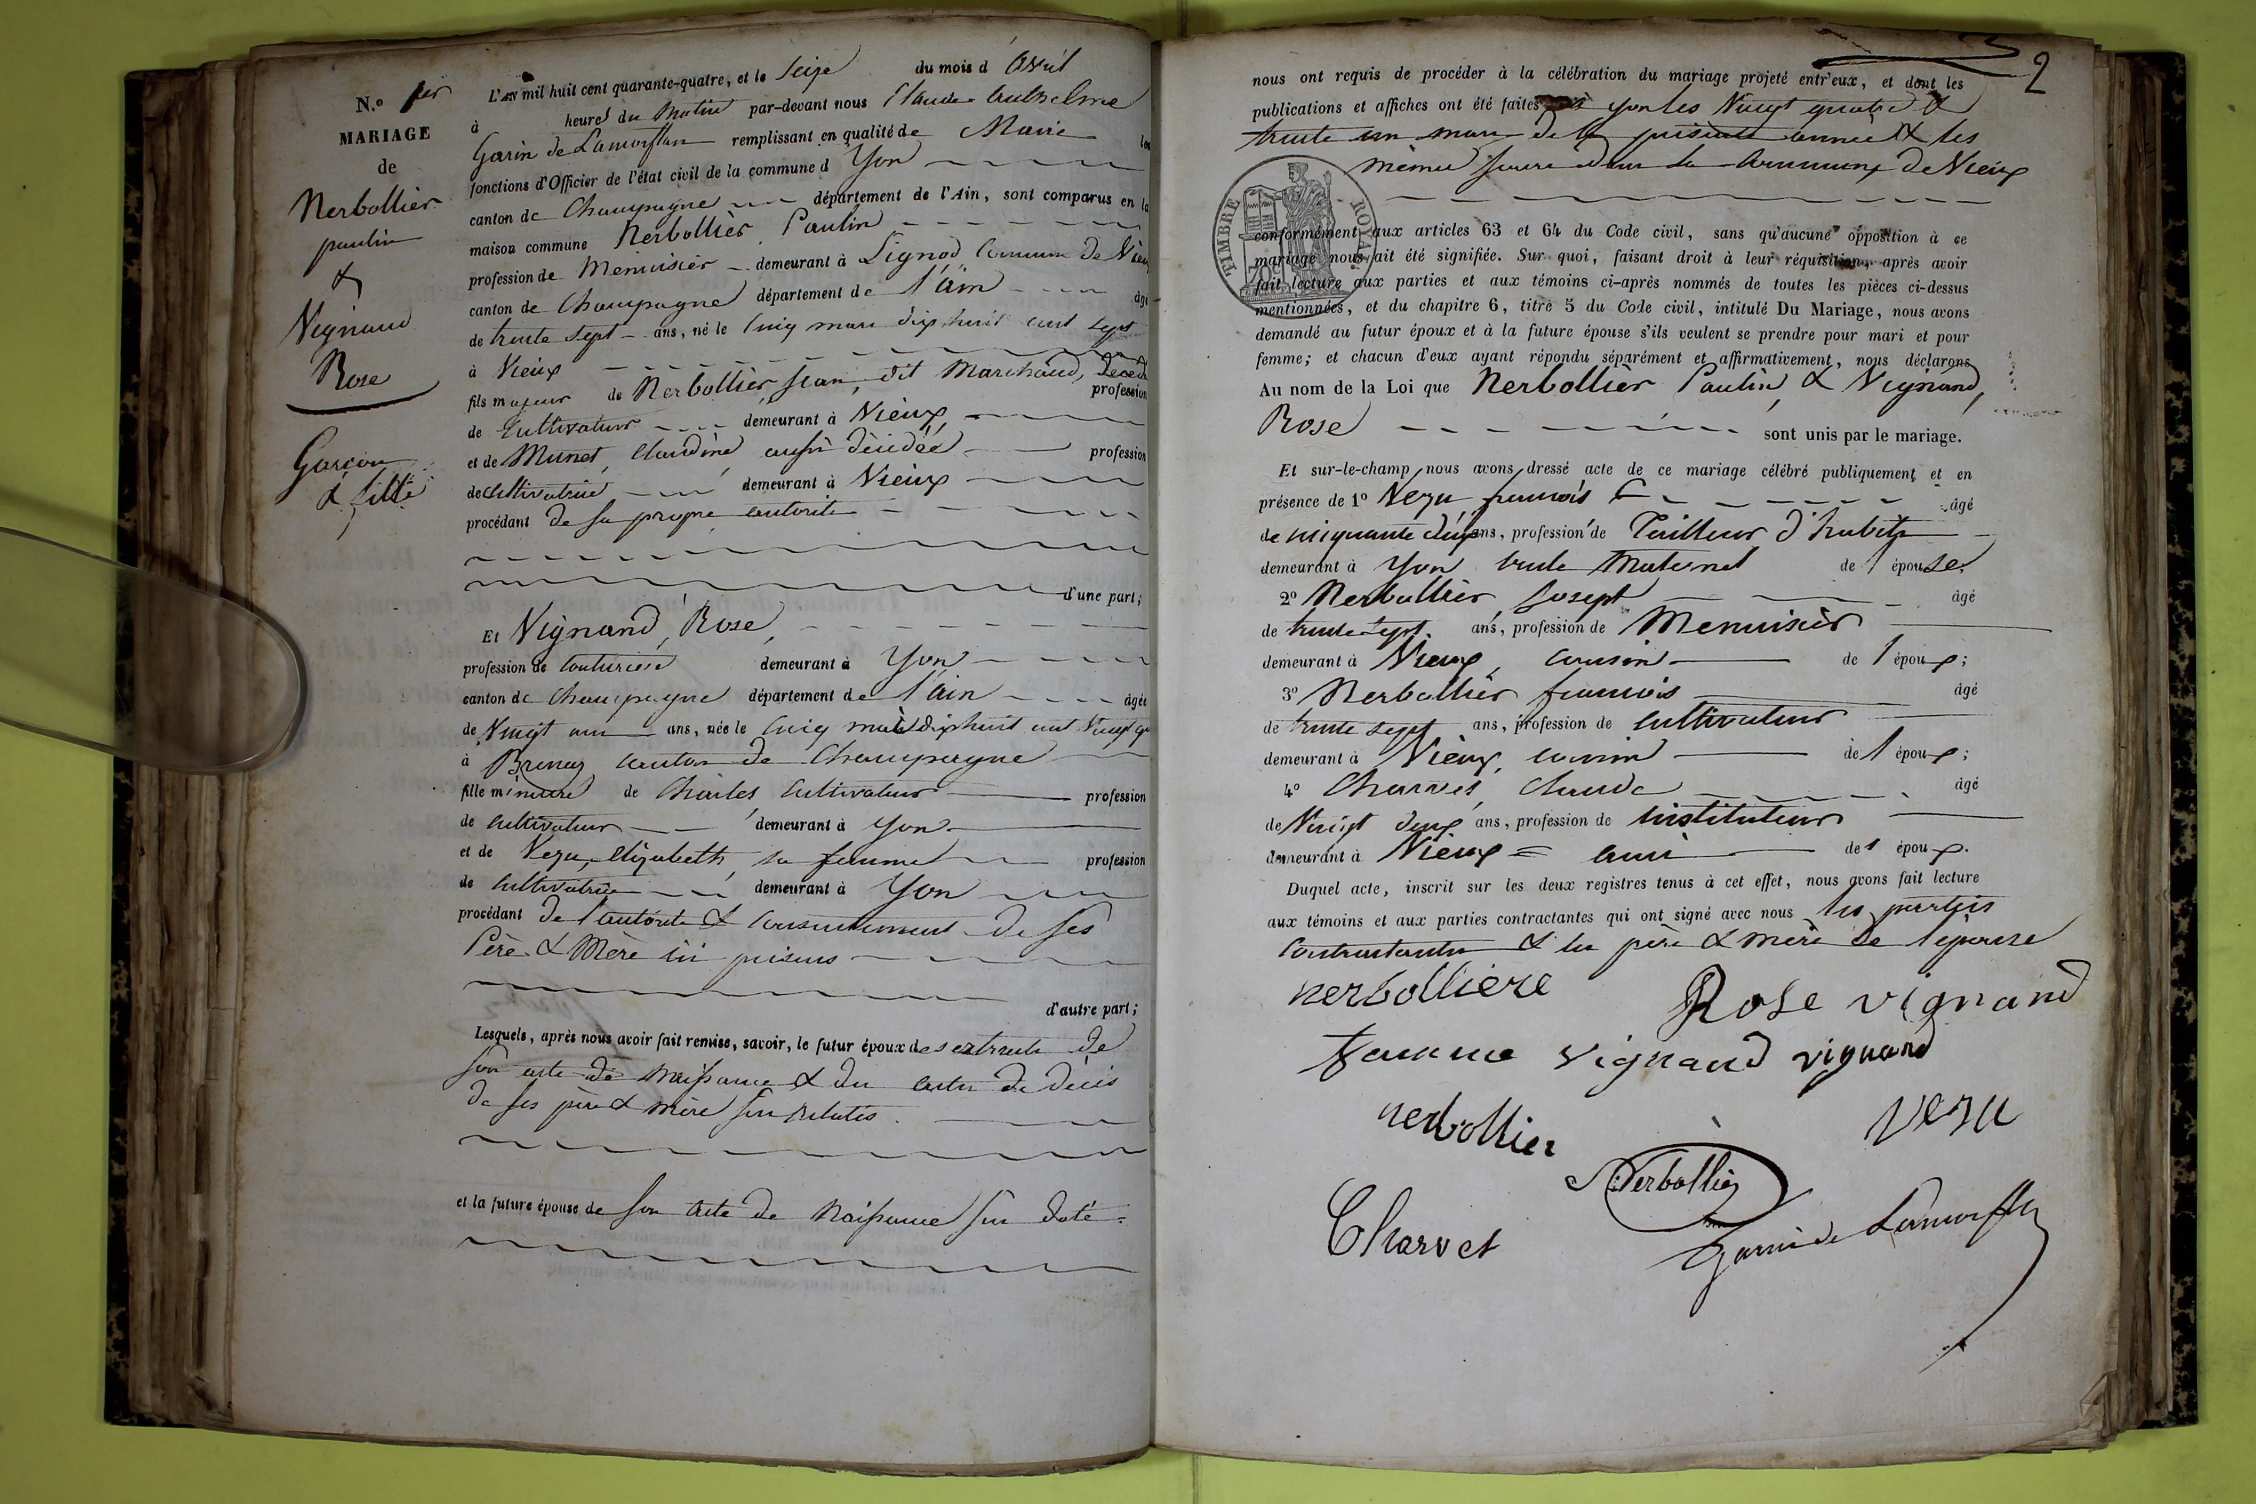 N.º 1er
MARIAGE
de
Nerbollier
paulin
&
Vignand
Rose
Garçon
& fille
L'AN mil huit cent quarante-quatre, et le Seize du mois d'Avril
à heures du Matin par-devant nous Claude Anthelme
Garin de Lamorflan remplissant en qualité de Maire les
fonctions d'Officier de l'état civil de la commune d Yon
canton de Champagne département de l'Ain, sont comparus en la
maison commune Nerbollier, Paulin
profession de Menuisier demeurant à Lignod Commune de Vieux
canton de Champagne département de l'ain âgé
de trente sept ans, né le Cinq mars dix huit cent sept
à Vieux
fils majeur de Nerbollier Jean, dit Marchand, Décédé profession
de Cultivateur demeurant à Vieux
et de Munet, Claudine aussi décédée profession
de cultivatrice demeurant à Vieux
procédant de sa propre autorité
d'une part;
Et Vignand, Rose
profession de Couturière demeurant à Yon
canton de Champagne département de l'ain âgée
de Vingt un ans, née le Cinq mai dix huit cent Vingt
à Brenaz canton de Champagne
fille mineure de Charles Cultivateur profession
de cultivateur demeurant à Yon
et de Vezu, Elizabeth, sa femme profession
de cultivatrice demeurant à Yon
procédant de l'autorité & consentement de ses
Père & Mère ici présens
d'autre part;
Lesquels, après nous avoir fait remise, savoir, le futur époux des extraits de
son acte de Naissance & du actes de décès
de ses père & mère sus relatés
et la future épouse de son acte de Naissance sus daté
2
nous ont requis de procéder à la célébration du mariage projeté entr'eux, et dont les
publications et affiches ont été faites à yon les Vingt quatre &
trente un mars de la présente année & les
mêmes jours dans la Commune de Vieux
TIMBRE ROYAL
70c
conformément aux articles 63 et 64 du Code civil, sans qu'aucune opposition à ce
mariage nous ait été signifiée. Sur quoi, faisant droit à leur réquisition, après avoir
fait lecture aux parties et aux témoins ci-après nommés de toutes les pièces ci-dessus
mentionnées, et du chapitre 6, titre 5 du Code civil, intitulé Du Mariage, nous avons
demandé au futur époux et à la future épouse s'ils veulent se prendre pour mari et pour
femme; et chacun d'eux ayant répondu séparément et affirmativement, nous déclarons
Au nom de la Loi que Nerbollier Paulin, & Vignand,
Rose sont unis par le mariage.
Et sur-le-champ nous avons dressé acte de ce mariage célébré publiquement et en
présence de 1º Vezu françois âgé
de cinquante deux ans, profession de Tailleur d'habits
demeurant à Yon oncle Maternel de l'épouse.
2º Nerbollier, Joseph âgé
de trente sept ans, profession de Menuisier
demeurant à Vieux, cousin de l'époux;
3º Nerbollier françois âgé
de trente sept ans, profession de cultivateur
demeurant à Vieux, cousin de l'époux;
4º Charvet, Claude âgé
de Vingt deux ans, profession de instituteur
demeurant à Vieux = ami de l'époux.
Duquel acte, inscrit sur les deux registres tenus à cet effet, nous avons fait lecture
aux témoins et aux parties contractantes qui ont signé avec nous les parties
contractantes & les père & mère de l'épouse
nerbolliere
Rose vignand
femme vignand vignand
nerbollier
vezu
Nerbollier
Charvet
Garin de Lamorflan